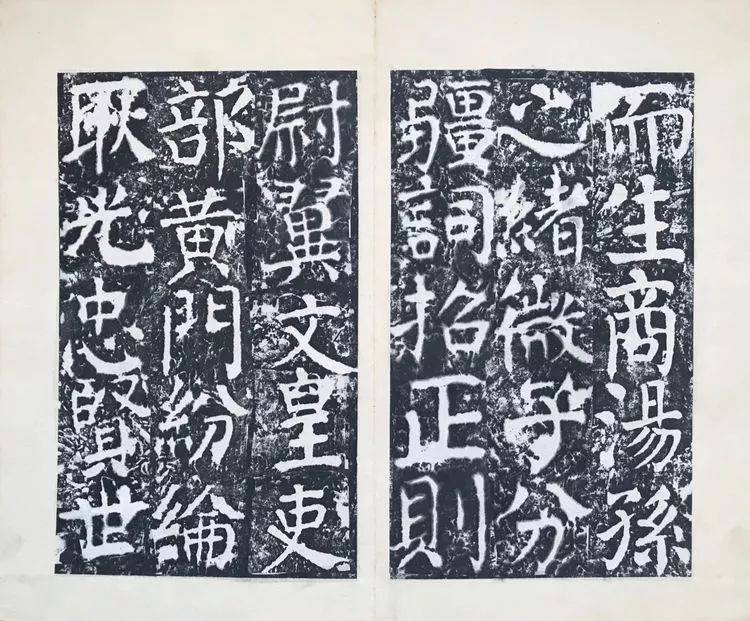 而生商湯孫
之緒微子分
疆詞招正則
尉翼文皇吏
部黃門紛綸
耿光忠賢世